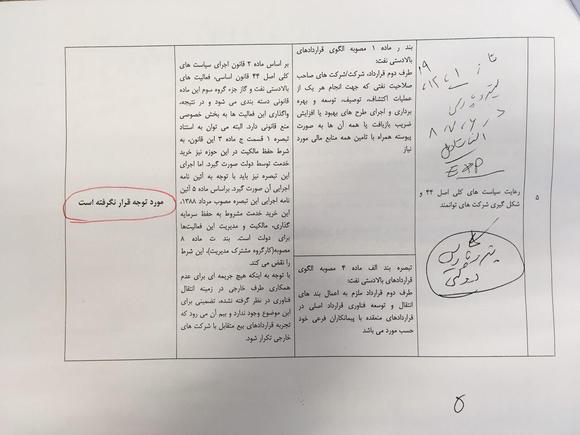 ۵
رعایت سیاست های کلی اصل ۴۴ و
شکل گیری شرکت های توانمند
EXP
بند ر ماده ۱ مصوبه الگوی قراردادهای
بالادستی نفت:
طرف دوم قرارداد، شرکت/شرکت های صاحب
صلاحیت نفتی که جهت انجام هر یک از
عملیات اکتشاف، توصیف، توسعه و بهره
برداری و اجرای طرح های بهبود یا افزایش
ضریب بازیافت یا همه آن ها به صورت
پیوسته همراه با تامین همه منابع مالی مورد
نیاز
تبصره بند الف ماده ۴ مصوبه الگوی
قراردادهای بالادستی نفت:
طرف دوم قرارداد ملزم به اعمال بند های
انتقال و توسعه فناوری قرارداد اصلی در
قراردادهای منعقده با پیمانکاران فرعی خود
حسب مورد می باشد
بر اساس ماده ۲ قانون اجرای سیاست های
کلی اصل ۴۴ قانون اساسی، فعالیت های
بالادستی نفت و گاز جزء گروه سوم این ماده
قانونی دسته بندی می شود و در نتیجه،
واگذاری این فعالیت ها به بخش خصوصی
منع قانونی دارد. البته می توان به استناد
تبصره ۱ قسمت ج ماده ۳ این قانون، به
شرط حفظ مالکیت در این حوزه نیز خرید
خدمت توسط دولت صورت گیرد. اما اجرای
این تبصره نیز باید با توجه به آئین نامه
اجرایی آن صورت گیرد. براساس ماده ۵ آئین
نامه اجرایی این تبصره مصوب مرداد ۱۳۸۸،
این خرید خدمت مشروط به حفظ سرمایه
گذاری، مالکیت و مدیریت این فعالیت‌ها
برای دولت است. بند ت ماده ۸
مصوبه(کارگروه مشترک مدیریت)، این شرط
را نقض می کند.
با توجه به اینکه هیچ جریمه ای برای عدم
همکاری طرف خارجی در زمینه انتقال
فناوری در نظر گرفته نشده، تضمینی برای
این موضوع وجود ندارد و بیم آن می رود که
تجربه قراردادهای بیع متقابل با شرکت های
خارجی تکرار شود.
مورد توجه قرار نگرفته است
۵